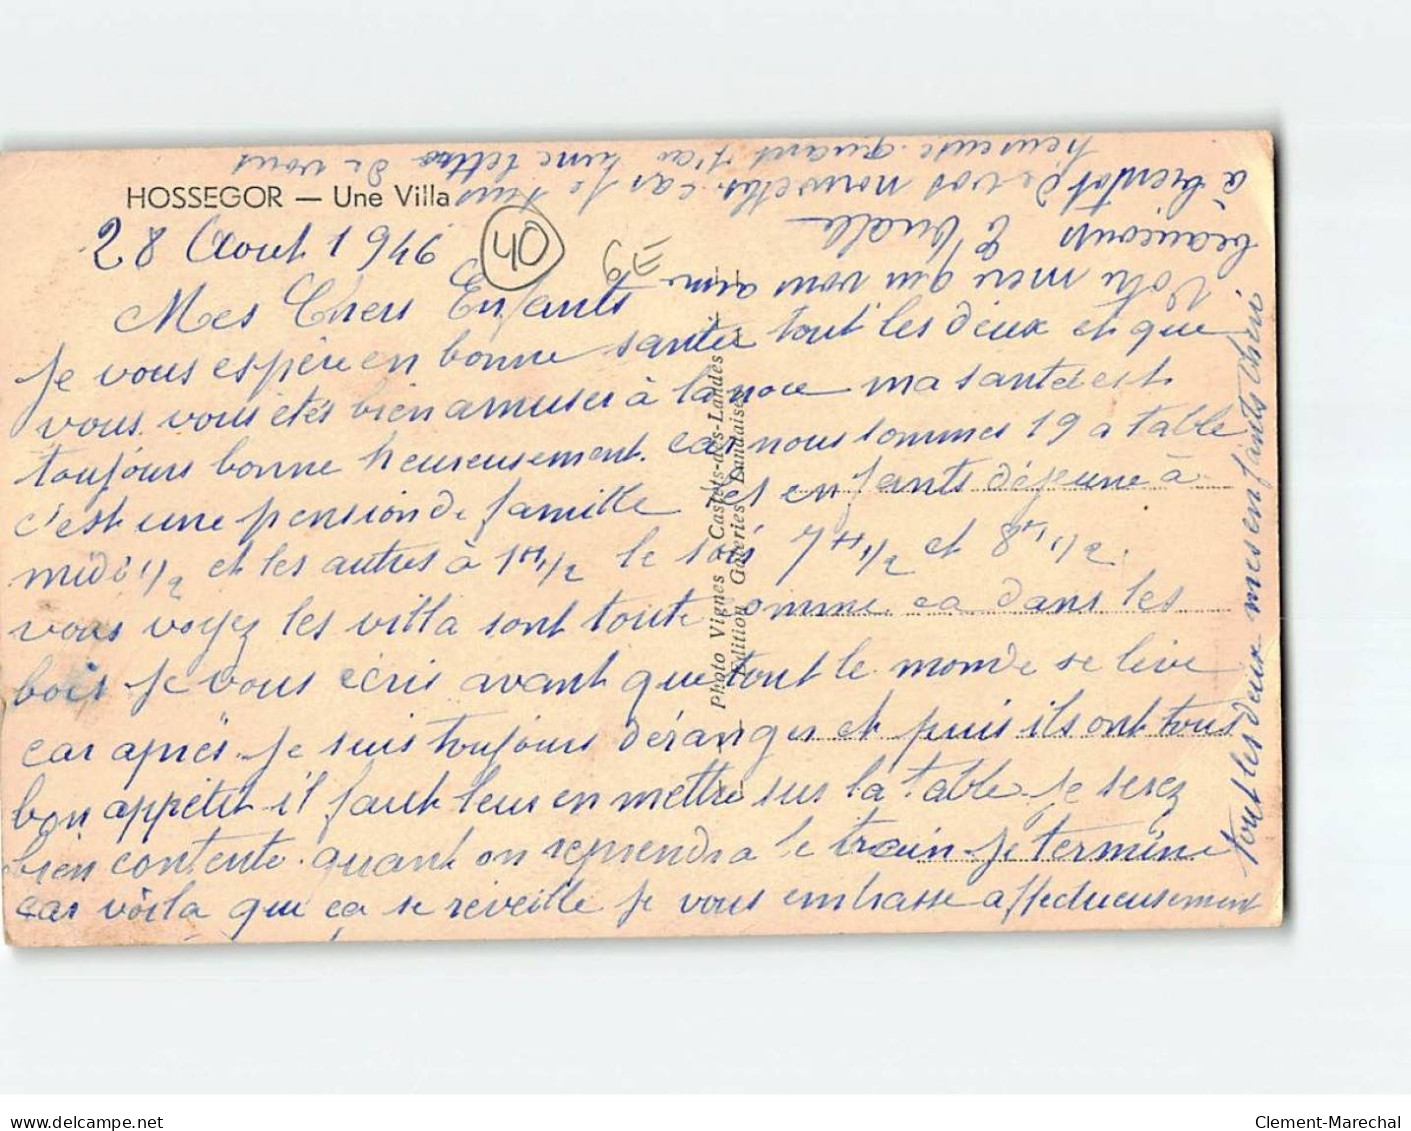 HOSSEGOR — Une Villa
28 Aout 1946
40
Mes Chers Enfants
Je vous espère en bonne santée tout les deux et que
vous vous etés bien amuser à la noce ma santé est
toujours bonne heureusement. car nous sommes 19 a table
c'est une pension de famille les enfants déjeune à
midi 1/2 et les autres à 1H 1/2 le soir 7H 1/2 et 8H 1/2.
vous voyez les villa sont toute comme ca dans les
bois je vous écris avant que tout le monde se lève
car après je suis toujours déranger et puis ils ont tous
bon appétit il faut leur en mettre sur la table. je serez
bien contente quant on reprendra le train. je termine
car voila que ça se réveille je vous embrasse affectueusement
tout les deux mes enfants chéri
Votre mère qui vous aime
beaucoup
à bientot de vos nouvelles car je suis
heureuse quant j'ai une lettre de vous
Photo Vignes Castets-des-Landes
Edition Galeries Landaises
Clement-Marechal